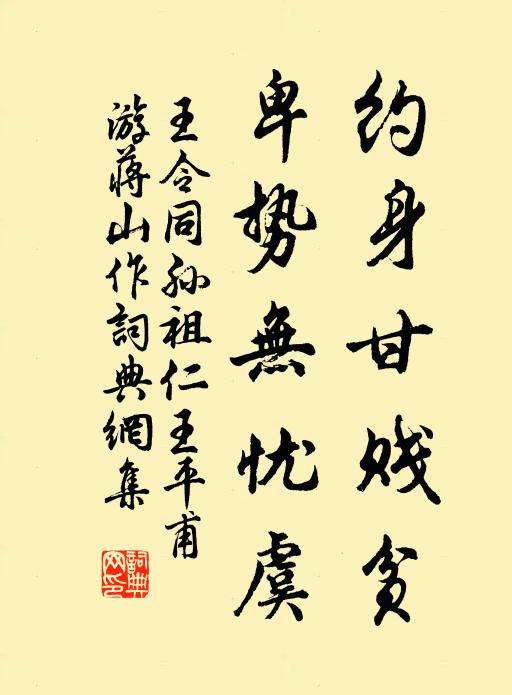 约身甘贱贫
卑势無忧虞
王令同孙祖仁王平甫
游蒋山作詞典網集
詞典網印